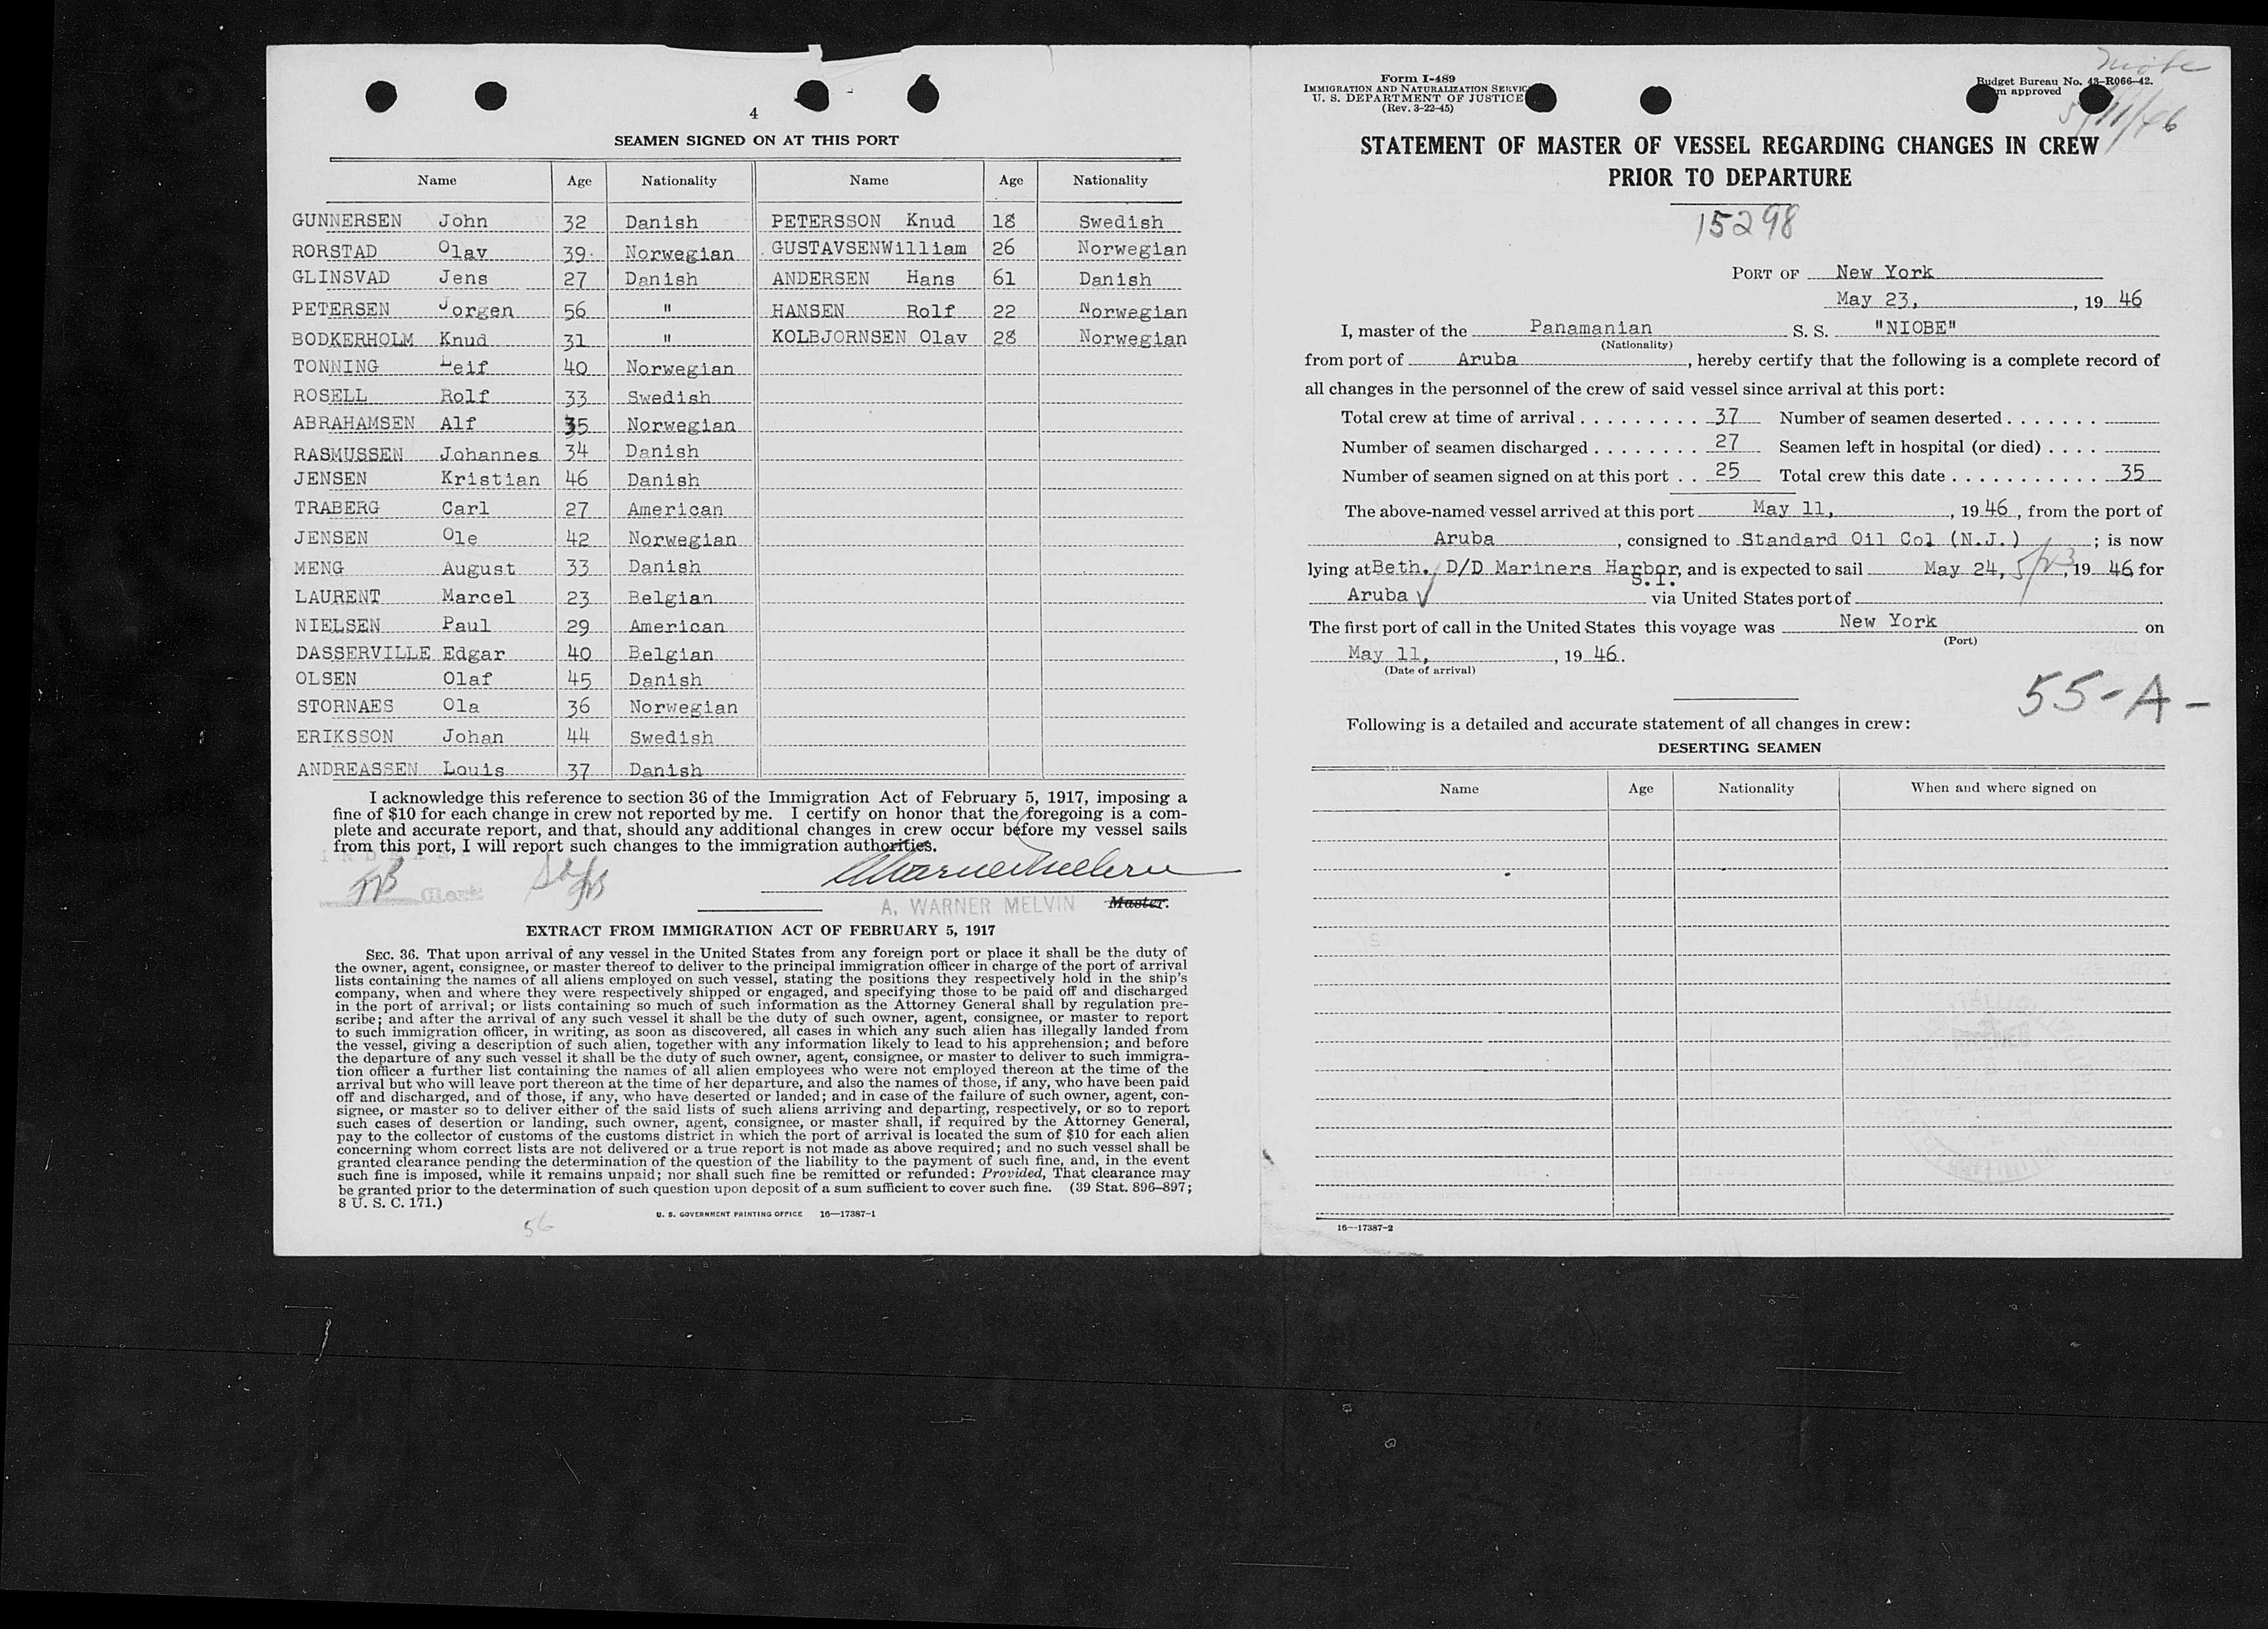 4
SEAMEN SIGNED ON AT THIS PORT
Name Age Nationality Name Age Nationality
GUNNERSEN John 32 Danish PETERSSON Knud 18 Swedish
RORSTAD Olav 39 Norwegian GUSTAVSEN William 26 Norwegian
GLINSVAD Jens 27 Danish ANDERSEN Hans 61 Danish
PETERSEN Jorgen 56 " HANSEN Rolf 22 Norwegian
BODKERHOLM Knud 31 " KOLBJORNSEN Olav 28 Norwegian
TONNING Leif 40 Norwegian
ROSELL Rolf 33 Swedish
ABRAHAMSEN Alf 35 Norwegian
RASMUSSEN Johannes 34 Danish
JENSEN Kristian 46 Danish
TRABERG Carl 27 American
JENSEN Ole 42 Norwegian
MENG August 33 Danish
LAURENT Marcel 23 Belgian
NIELSEN Paul 29 American
DASSERVILLE Edgar 40 Belgian
OLSEN Olaf 45 Danish
STORNAES Ola 36 Norwegian
ERIKSSON Johan 44 Swedish
ANDREASSEN Louis 37 Danish
I acknowledge this reference to section 36 of the Immigration Act of February 5, 1917, imposing a
fine of $10 for each change in crew not reported by me. I certify on honor that the foregoing is a com-
plete and accurate report, and that, should any additional changes in crew occur before my vessel sails
from this port, I will report such changes to the immigration authorities.
Clerk
A. WARNER MELVIN Master.
EXTRACT FROM IMMIGRATION ACT OF FEBRUARY 5, 1917
SEC. 36. That upon arrival of any vessel in the United States from any foreign port or place it shall be the duty of
the owner, agent, consignee, or master thereof to deliver to the principal immigration officer in charge of the port of arrival
lists containing the names of all aliens employed on such vessel, stating the positions they respectively hold in the ship's
company, when and where they were respectively shipped or engaged, and specifying those to be paid off and discharged
in the port of arrival; or lists containing so much of such information as the Attorney General shall by regulation pre-
scribe; and after the arrival of any such vessel it shall be the duty of such owner, agent, consignee, or master to report
to such immigration officer, in writing, as soon as discovered, all cases in which any such alien has illegally landed from
the vessel, giving a description of such alien, together with any information likely to lead to his apprehension; and before
the departure of any such vessel it shall be the duty of such owner, agent, consignee, or master to deliver to such immigra-
tion officer a further list containing the names of all alien employees who were not employed thereon at the time of the
arrival but who will leave port thereon at the time of her departure, and also the names of those, if any, who have been paid
off and discharged, and of those, if any, who have deserted or landed; and in case of the failure of such owner, agent, con-
signee, or master so to deliver either of the said lists of such aliens arriving and departing, respectively, or so to report
such cases of desertion or landing, such owner, agent, consignee, or master shall, if required by the Attorney General,
pay to the collector of customs of the customs district in which the port of arrival is located the sum of $10 for each alien
concerning whom correct lists are not delivered or a true report is not made as above required; and no such vessel shall be
granted clearance pending the determination of the question of the liability to the payment of such fine, and, in the event
such fine is imposed, while it remains unpaid; nor shall such fine be remitted or refunded: Provided, That clearance may
be granted prior to the determination of such question upon deposit of a sum sufficient to cover such fine. (39 Stat. 896–897;
8 U. S. C. 171.)
U. S. GOVERNMENT PRINTING OFFICE 16—17387-1
56
Niobe
5/11/46
Form I-489
IMMIGRATION AND NATURALIZATION SERVIC
U. S. DEPARTMENT OF JUSTICE
(Rev. 3-22-45)
Budget Bureau No. 43-R066-42.
approved
STATEMENT OF MASTER OF VESSEL REGARDING CHANGES IN CREW
PRIOR TO DEPARTURE
15298
PORT OF New York
May 23, , 19 46
I, master of the Panamanian S. S. "NIOBE"
(Nationality)
from port of Aruba , hereby certify that the following is a complete record of
all changes in the personnel of the crew of said vessel since arrival at this port:
Total crew at time of arrival . . . . . . . . . 37 Number of seamen deserted . . . . . . .
Number of seamen discharged . . . . . . . . 27 Seamen left in hospital (or died) . . . .
Number of seamen signed on at this port . . 25 Total crew this date . . . . . . . . . . . 35
The above-named vessel arrived at this port May 11, , 19 46 , from the port of
Aruba , consigned to Standard Oil Col (N.J.) ; is now
lying at Beth. D/D Mariners Harbor, S.I. and is expected to sail May 24, 5/23 , 19 46 for
Aruba via United States port of
The first port of call in the United States this voyage was New York on
(Port)
May 11, , 19 46.
(Date of arrival)
55-A-
Following is a detailed and accurate statement of all changes in crew:
DESERTING SEAMEN
Name Age Nationality When and where signed on
16—17387-2